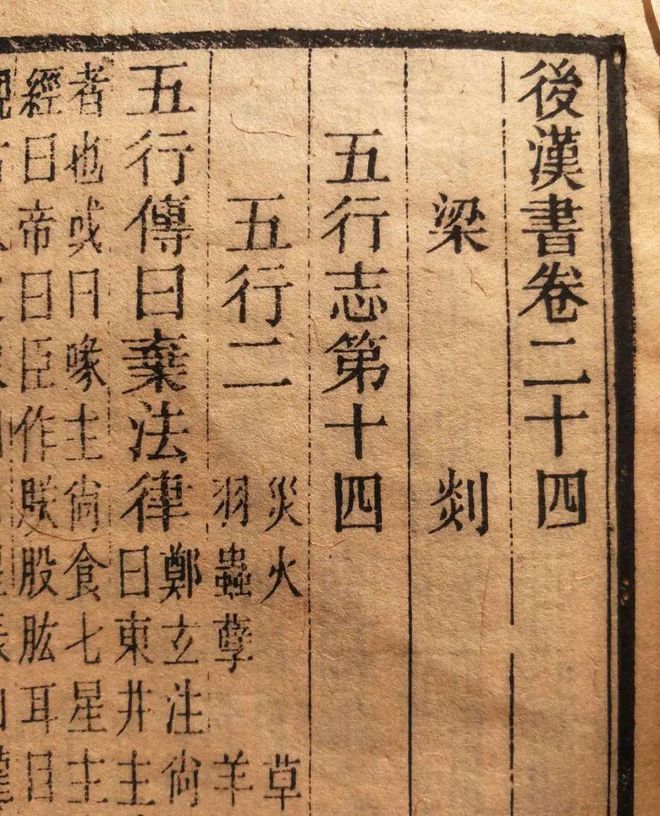 後漢書卷二十四
梁 剡
五行志第十四
五行二
災火 草
羽蟲孽 羊
五行傳曰棄法律
鄭玄注尙
曰東井主
者也或曰喙主尙食七星主
經曰帝曰臣作朕股肱耳目